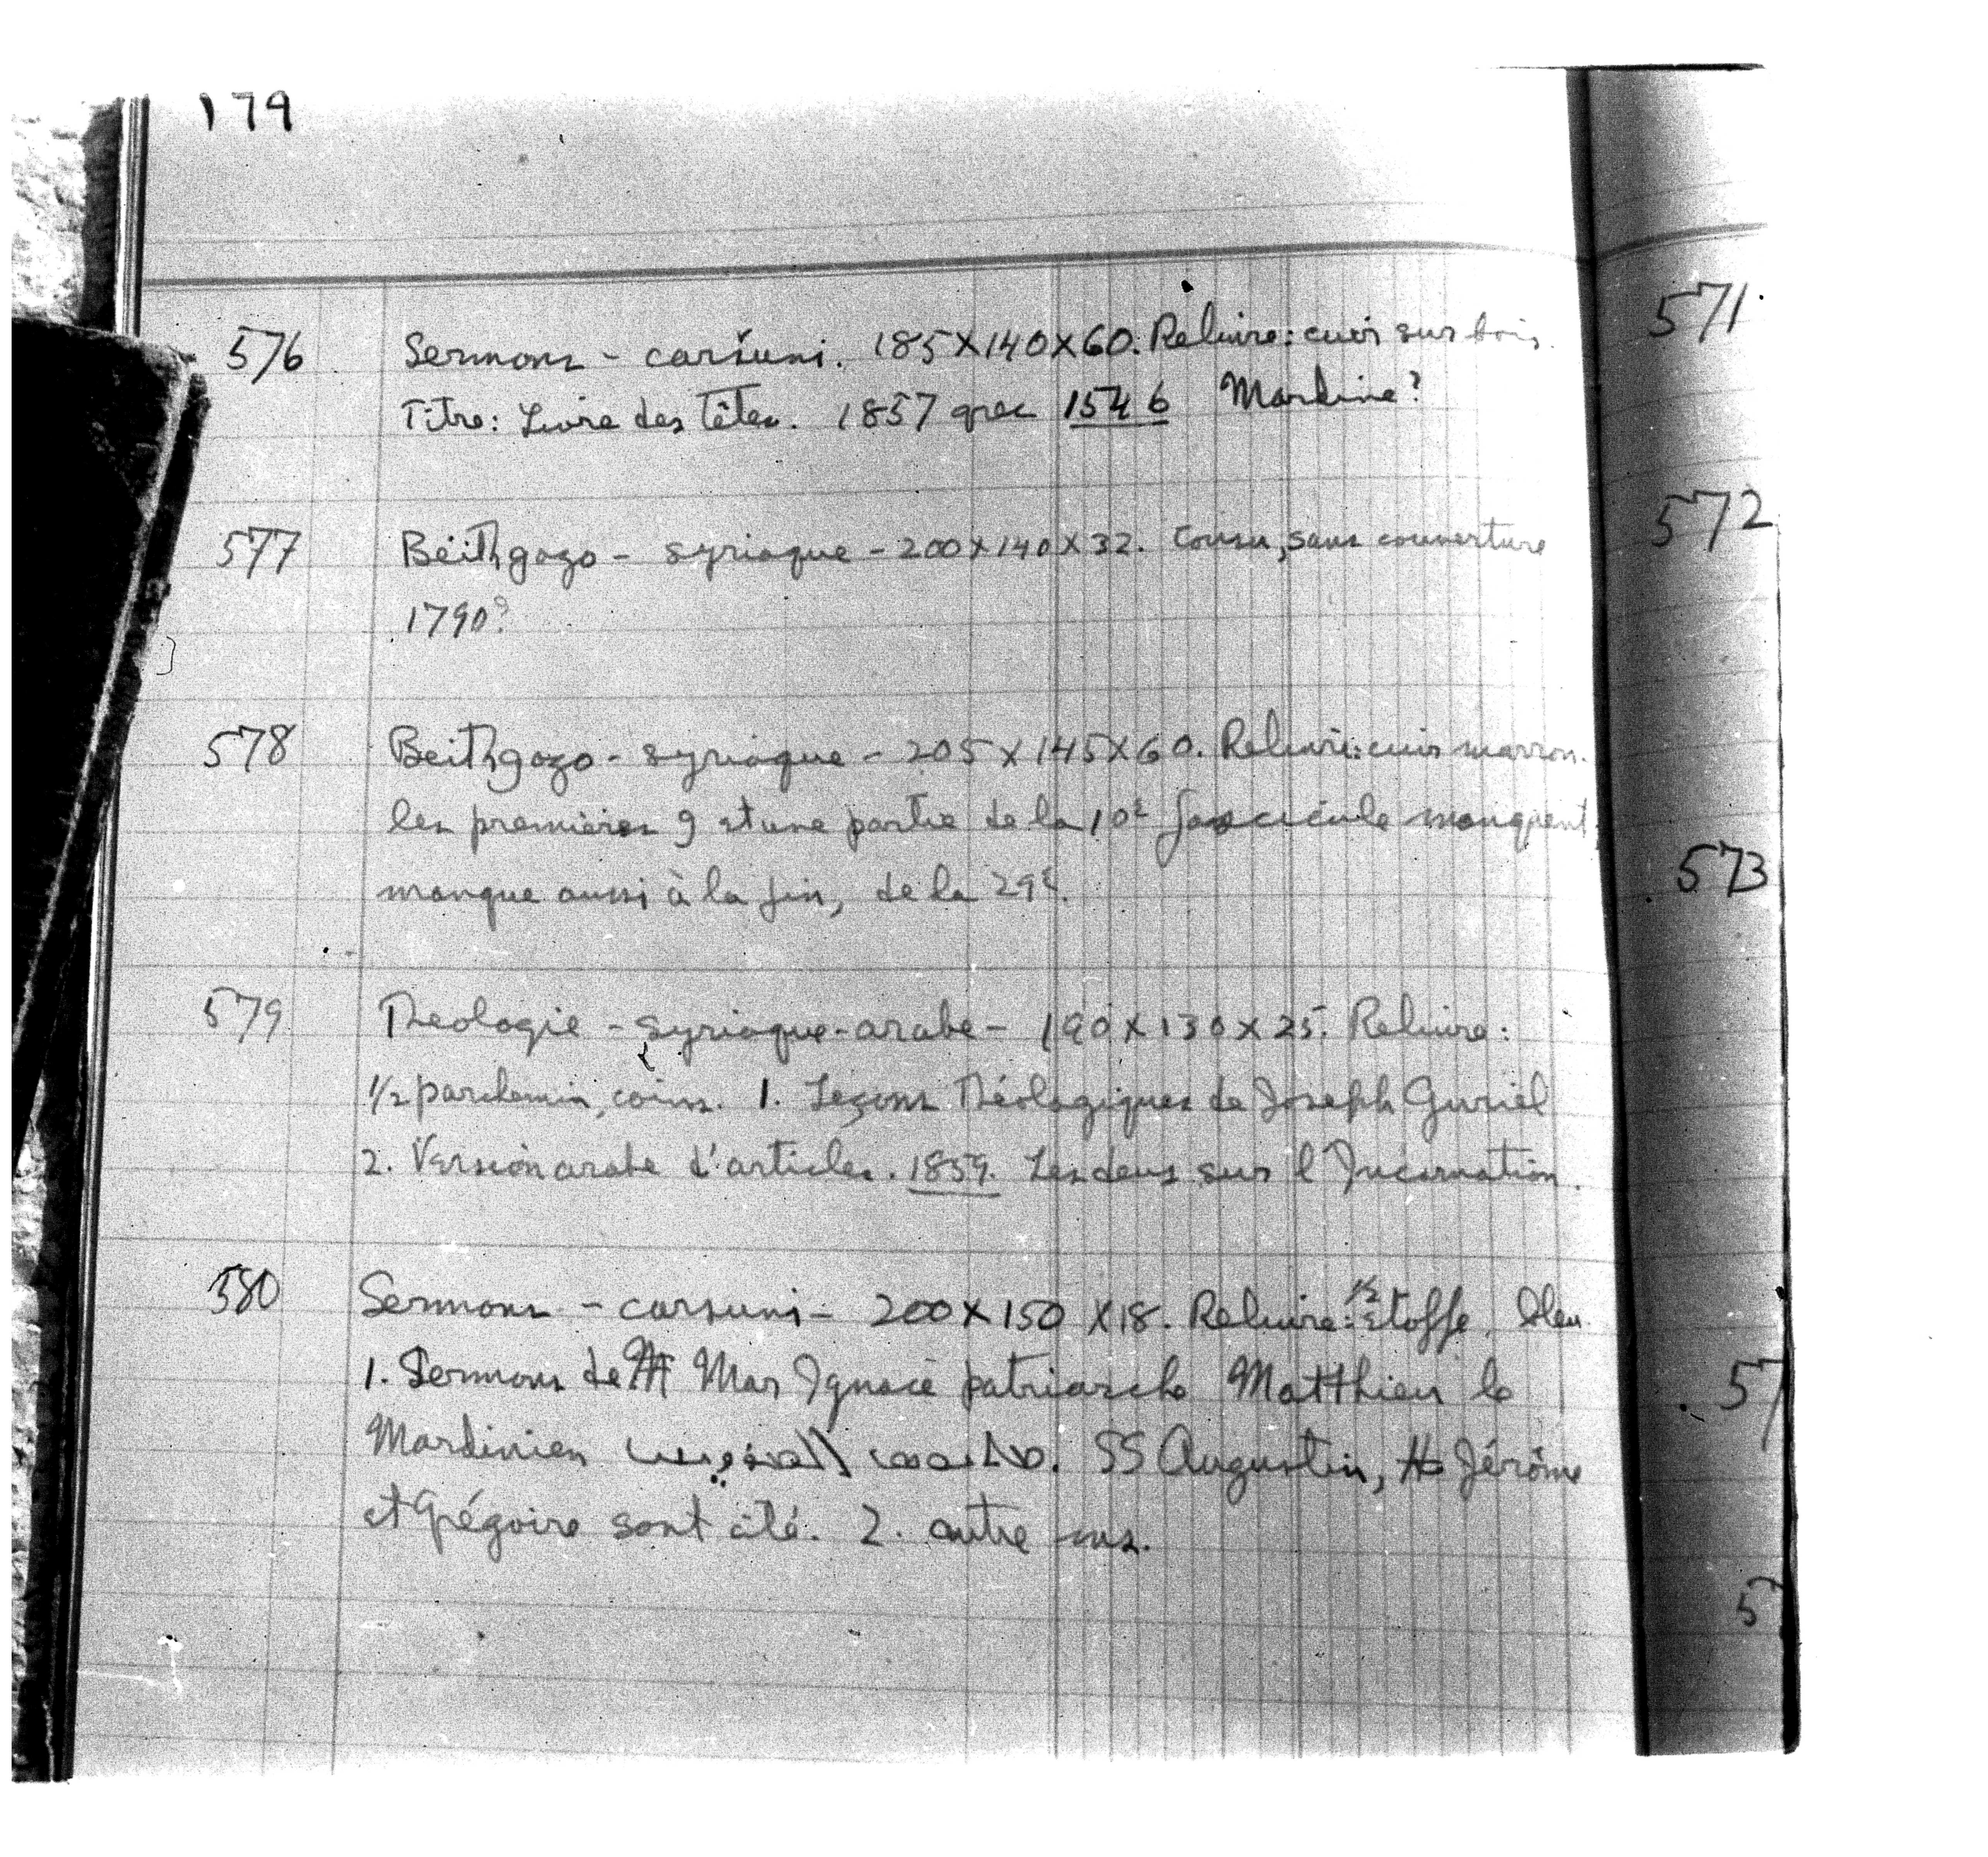 179
576 Sermons - caršuni. 185×140×60. Reliure: cuir sur bois.
Titre: Livre des Têtes. 1857 grec 1546 Mardine?
577 Béithgazo - syriaque - 200×140×32. Cousu, sans couverture
1790?
578 Beithgazo - syriaque - 205×145×60. Reliure: cuir marron.
les premières 9 et une partie de la 10e fascicule manquent,
manque aussi à la fin, de la 29e.
579 Theologie - syriaque-arabe - 190×130×25. Reliure:
1/2 parchemin, coins. 1. Leçons Théologiques de Joseph Guriel
2. Version arabe d'articles. 1859. Les deux sur l'Incarnation.
580 Sermons - carsuni - 200×150×18. Reliure: 1/2 étoffe, bleu
1. Sermons de Mar Ignace patriarche Matthieu le
Mardinien . SS Augustin, Jérôme
et Grégoire sont cité. 2. autre ms.
571
572
573
57
5